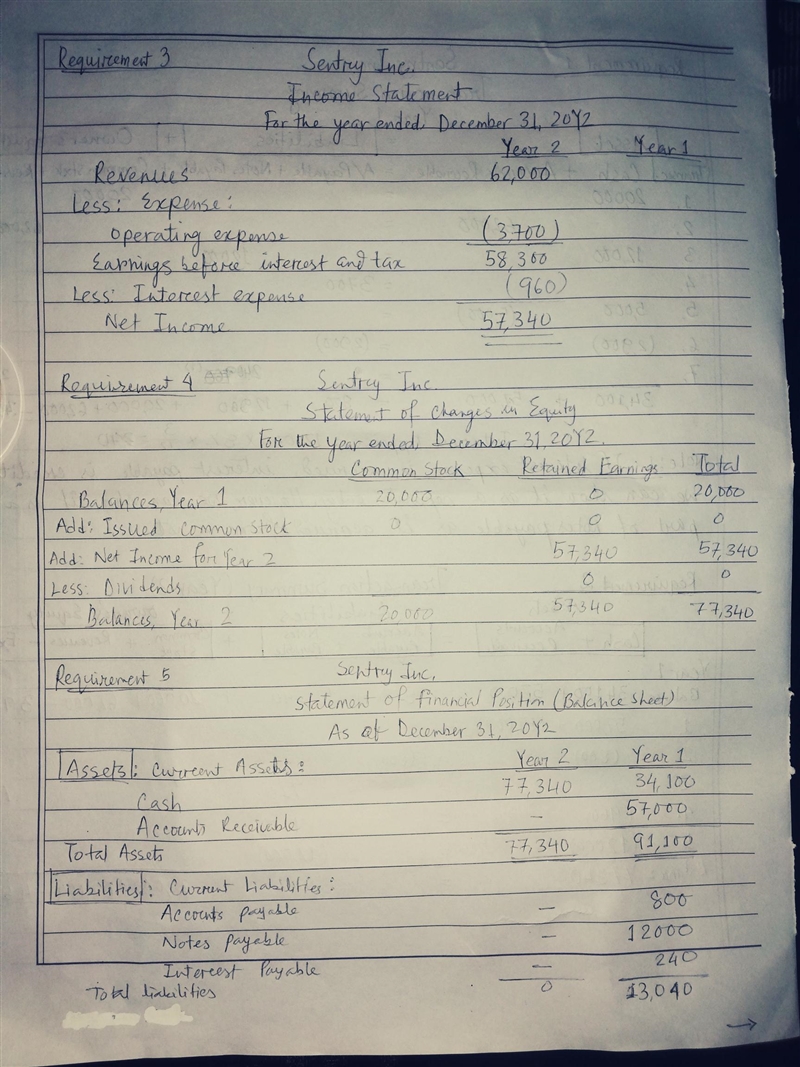 Requirement 3 Sentry Inc.
Income Statement
For the year ended, December 31, 20Y2
Year 2 Year 1
Revenues 62,000
Less: Expense:
Operating expense (3,700)
Earnings before interest and tax 58,300
Less: Interest expense (960)
Net Income 57,340
Requirement 4 Sentry Inc.
Statement of Changes in Equity
For the year ended, December 31, 20Y2.
Common Stock Retained Earnings Total
Balances, Year 1 20,000 0 20,000
Add: Issued common stock 0 0 0
Add: Net Income for Year 2 57,340 57,340
Less: Dividends 0 0
Balances, Year 2 20,000 57,340 77,340
Requirement 5 Sentry Inc.
Statement of Financial Position (Balance sheet)
As of December 31, 20Y2
Assets: Current Assets: Year 2 Year 1
Cash 77,340 34,100
Accounts Receivable — 57,000
Total Assets 77,340 91,100
Liabilities: Current Liabilities:
Accounts payable — 800
Notes Payable — 12000
Interest Payable — 240
Total liabilities 0 13,040